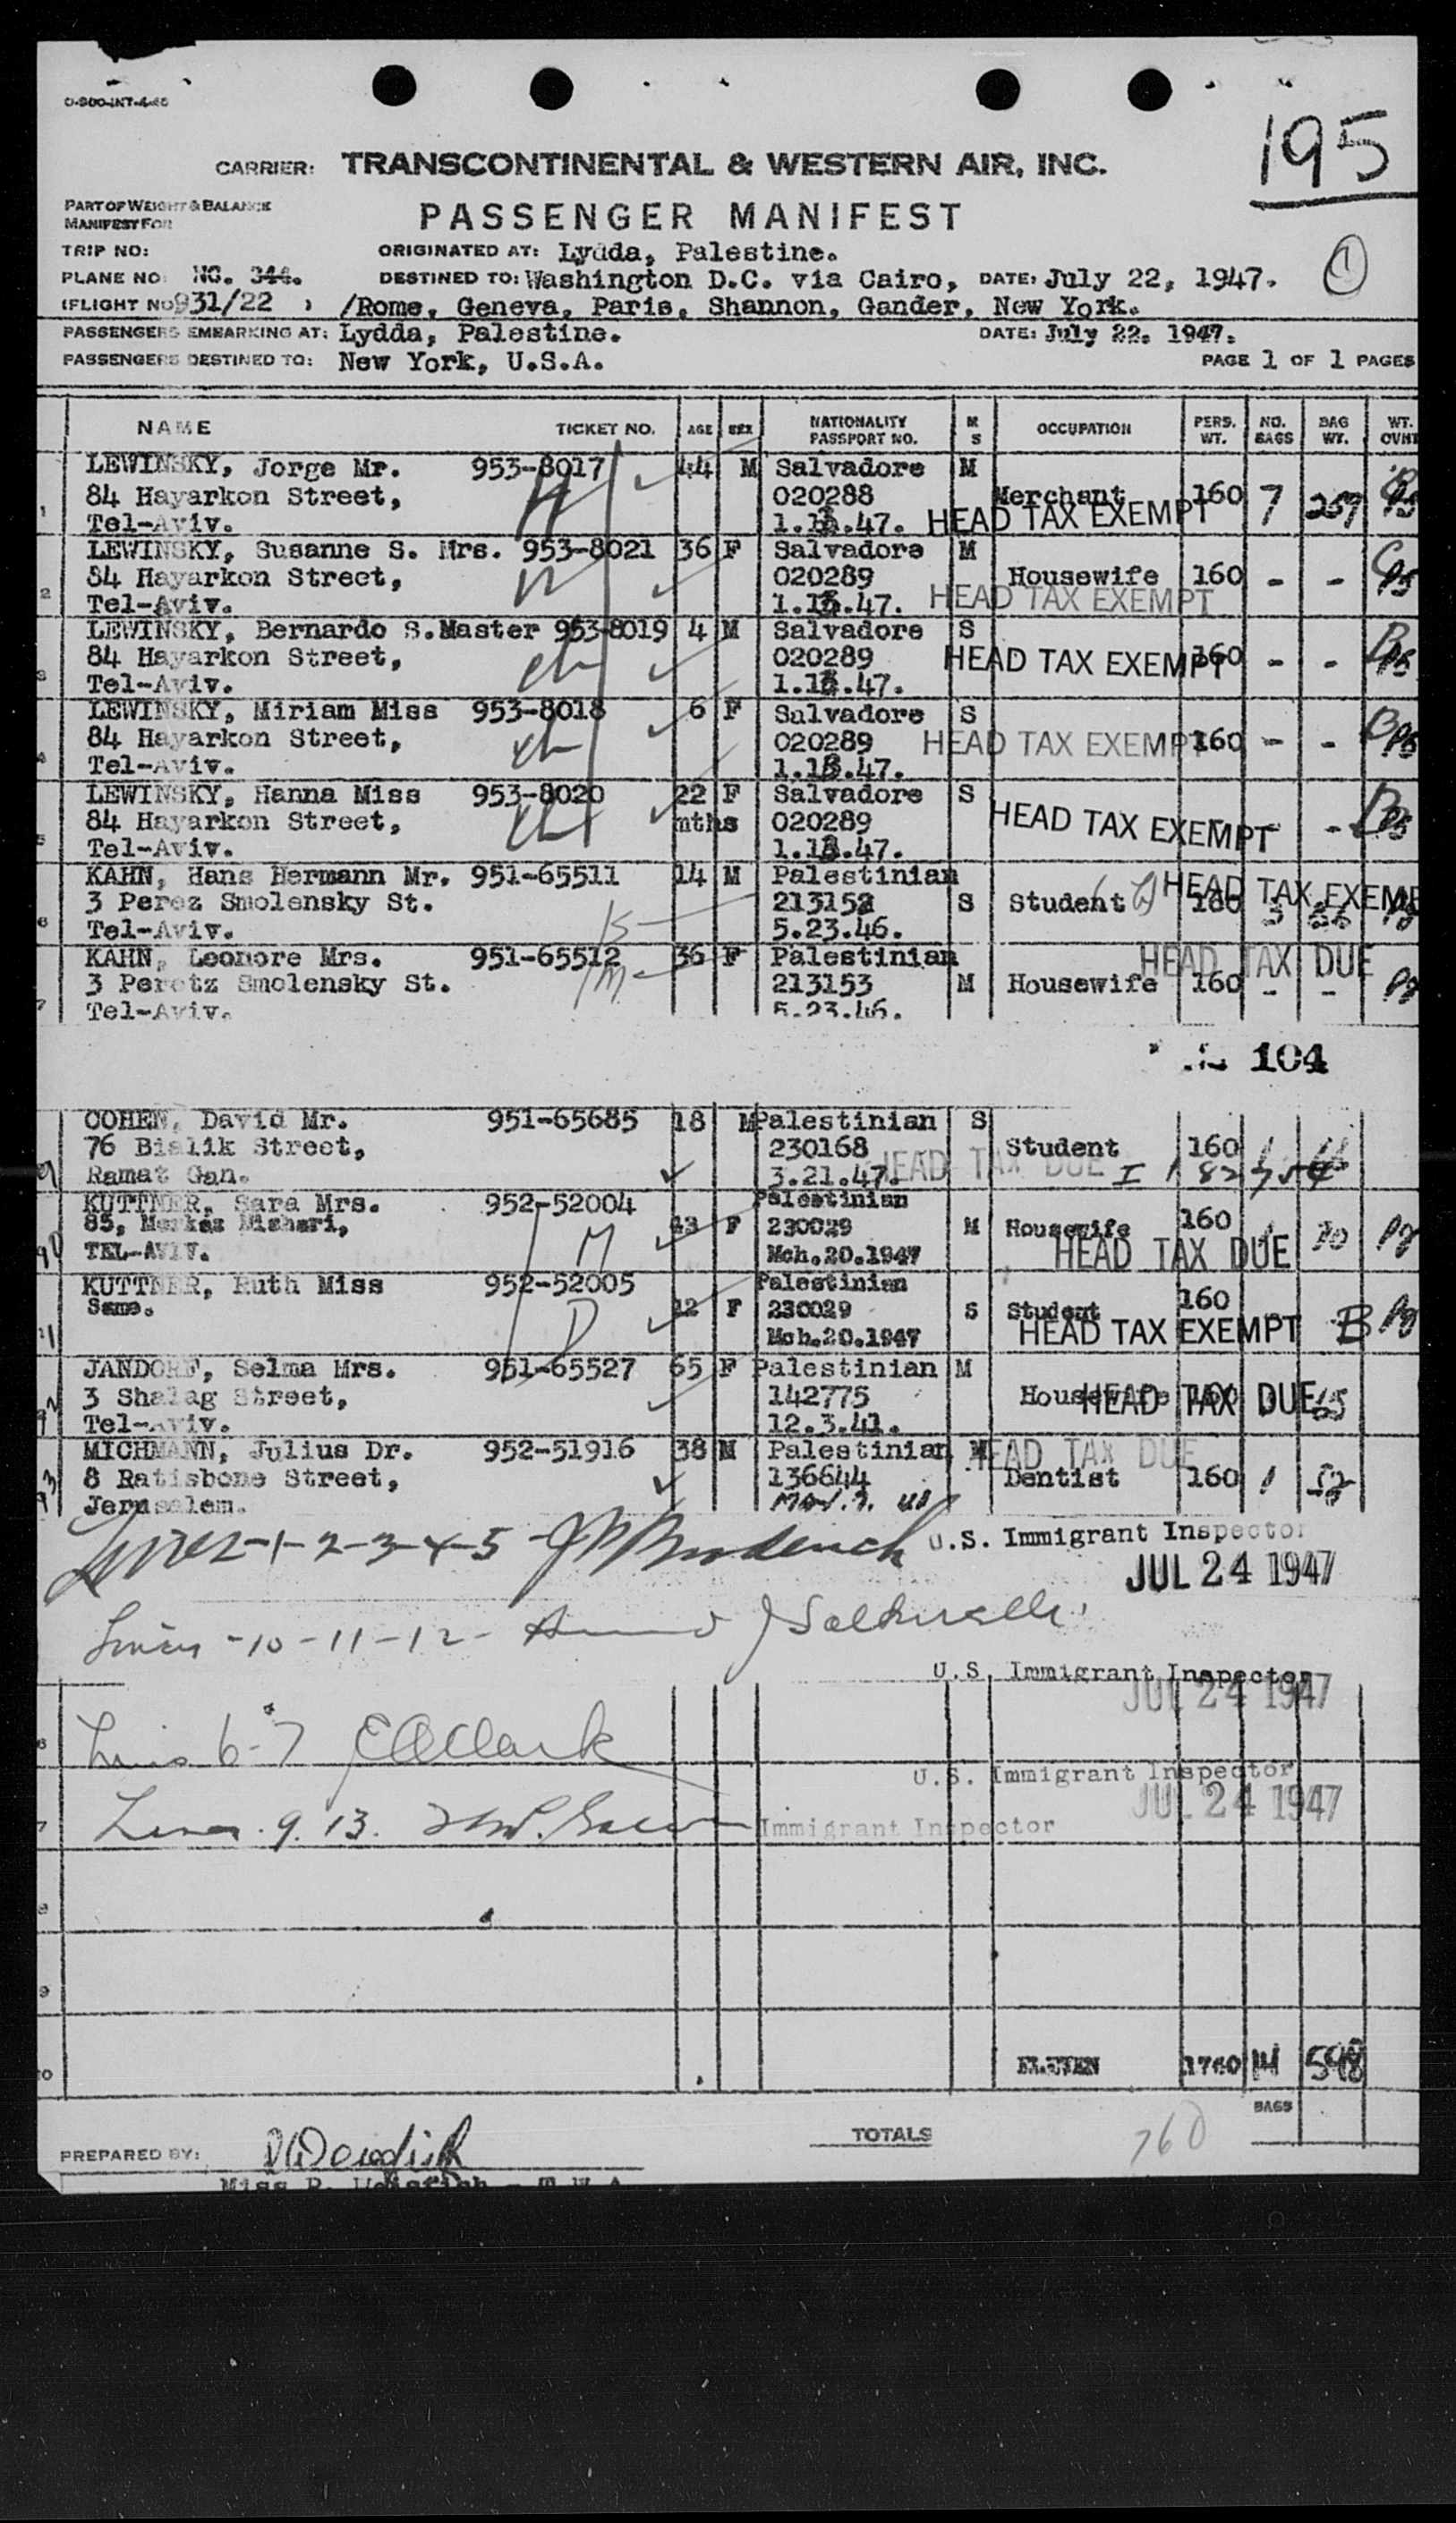 195
CARRIER: TRANSCONTINENTAL & WESTERN AIR, INC.
PART OF WEIGHT & BALANCE
MANIFEST FOR
PASSENGER MANIFEST
TRIP NO: ORIGINATED AT: Lydda, Palestine.
PLANE NO: NC. 344. DESTINED TO: Washington D.C. via Cairo, DATE: July 22, 1947. 1
(FLIGHT NO 931/22 ) /Rome, Geneva, Paris, Shannon, Gander, New York.
PASSENGERS EMBARKING AT: Lydda, Palestine. DATE: July 22. 1947.
PASSENGERS DESTINED TO: New York, U.S.A. PAGE 1 OF 1 PAGES
NAME TICKET NO. AGE SEX NATIONALITY PASSPORT NO. M S OCCUPATION PERS. WT. NO. BAGS BAG WT. WT. OVHT
LEWINSKY, Jorge Mr. 953-8017 44 M Salvadore M
84 Hayarkon Street, 020288 Merchant 160 7 259
1 Tel-Aviv. 47. HEAD TAX EXEMPT
LEWINSKY, Susanne S. Mrs. 953-8021 36 F Salvadore M
84 Hayarkon Street, 020289 Housewife 160 - -
2 Tel-Aviv. 47. HEAD TAX EXEMPT
LEWINSKY, Bernardo S. Master 953-8019 4 M Salvadore S
84 Hayarkon Street, 020289 HEAD TAX EXEMPT 160 - -
3 Tel-Aviv. 47.
LEWINSKY, Miriam Miss 953-8018 6 F Salvadore S
84 Hayarkon Street, 020289 HEAD TAX EXEMPT 160 - -
4 Tel-Aviv. 47.
LEWINSKY, Hanna Miss 953-8020 22 F Salvadore S
84 Hayarkon Street, mths 020289 HEAD TAX EXEMPT - -
5 Tel-Aviv. 47.
KAHN, Hans Hermann Mr. 951-65511 14 M Palestinian HEAD TAX EXEMP
3 Perez Smolensky St. 213152 S Student 160
6 Tel-Aviv. 5.23.46.
KAHN, Leonore Mrs. 951-65512 36 F Palestinian HEAD TAX DUE
3 Peretz Smolensky St. 213153 M Housewife 160 - -
7 Tel-Aviv. 5.23.46.
104
COHEN, David Mr. 951-65685 18 M Palestinian S
76 Bialik Street, 230168 Student 160
9 Ramat Gan. 3.21.47. HEAD TAX DUE
KUTTNER, Sara Mrs. 952-52004 Palestinian
85, Merkaz Mishari, 43 F 230029 M Housewife 160
TEL-AVIV. Mch.20.1947 HEAD TAX DUE
KUTTNER, Ruth Miss 952-52005 Palestinian
Same. 12 F 230029 S Student 160
Mch.20.1947 HEAD TAX EXEMPT B
JANDORF, Selma Mrs. 951-65527 65 F Palestinian M
3 Shalag Street, 142775 Housewife HEAD TAX DUE
Tel-Aviv. 12.3.41.
MICHMANN, Julius Dr. 952-51916 38 M Palestinian M HEAD TAX DUE
8 Ratisbone Street, 136644 Dentist 160 1
Jerusalem.
Lines-1-2-3-4-5 U.S. Immigrant Inspector
JUL 24 1947
Lines -10-11-12-
U.S. Immigrant Inspector
JUL 24 1947
Lines 6-7 E A Clark
U.S. Immigrant Inspector
JUL 24 1947
Lines 9.13. Immigrant Inspector
ELEVEN 1760 14 598
BAGS
TOTALS
760
PREPARED BY:
Miss